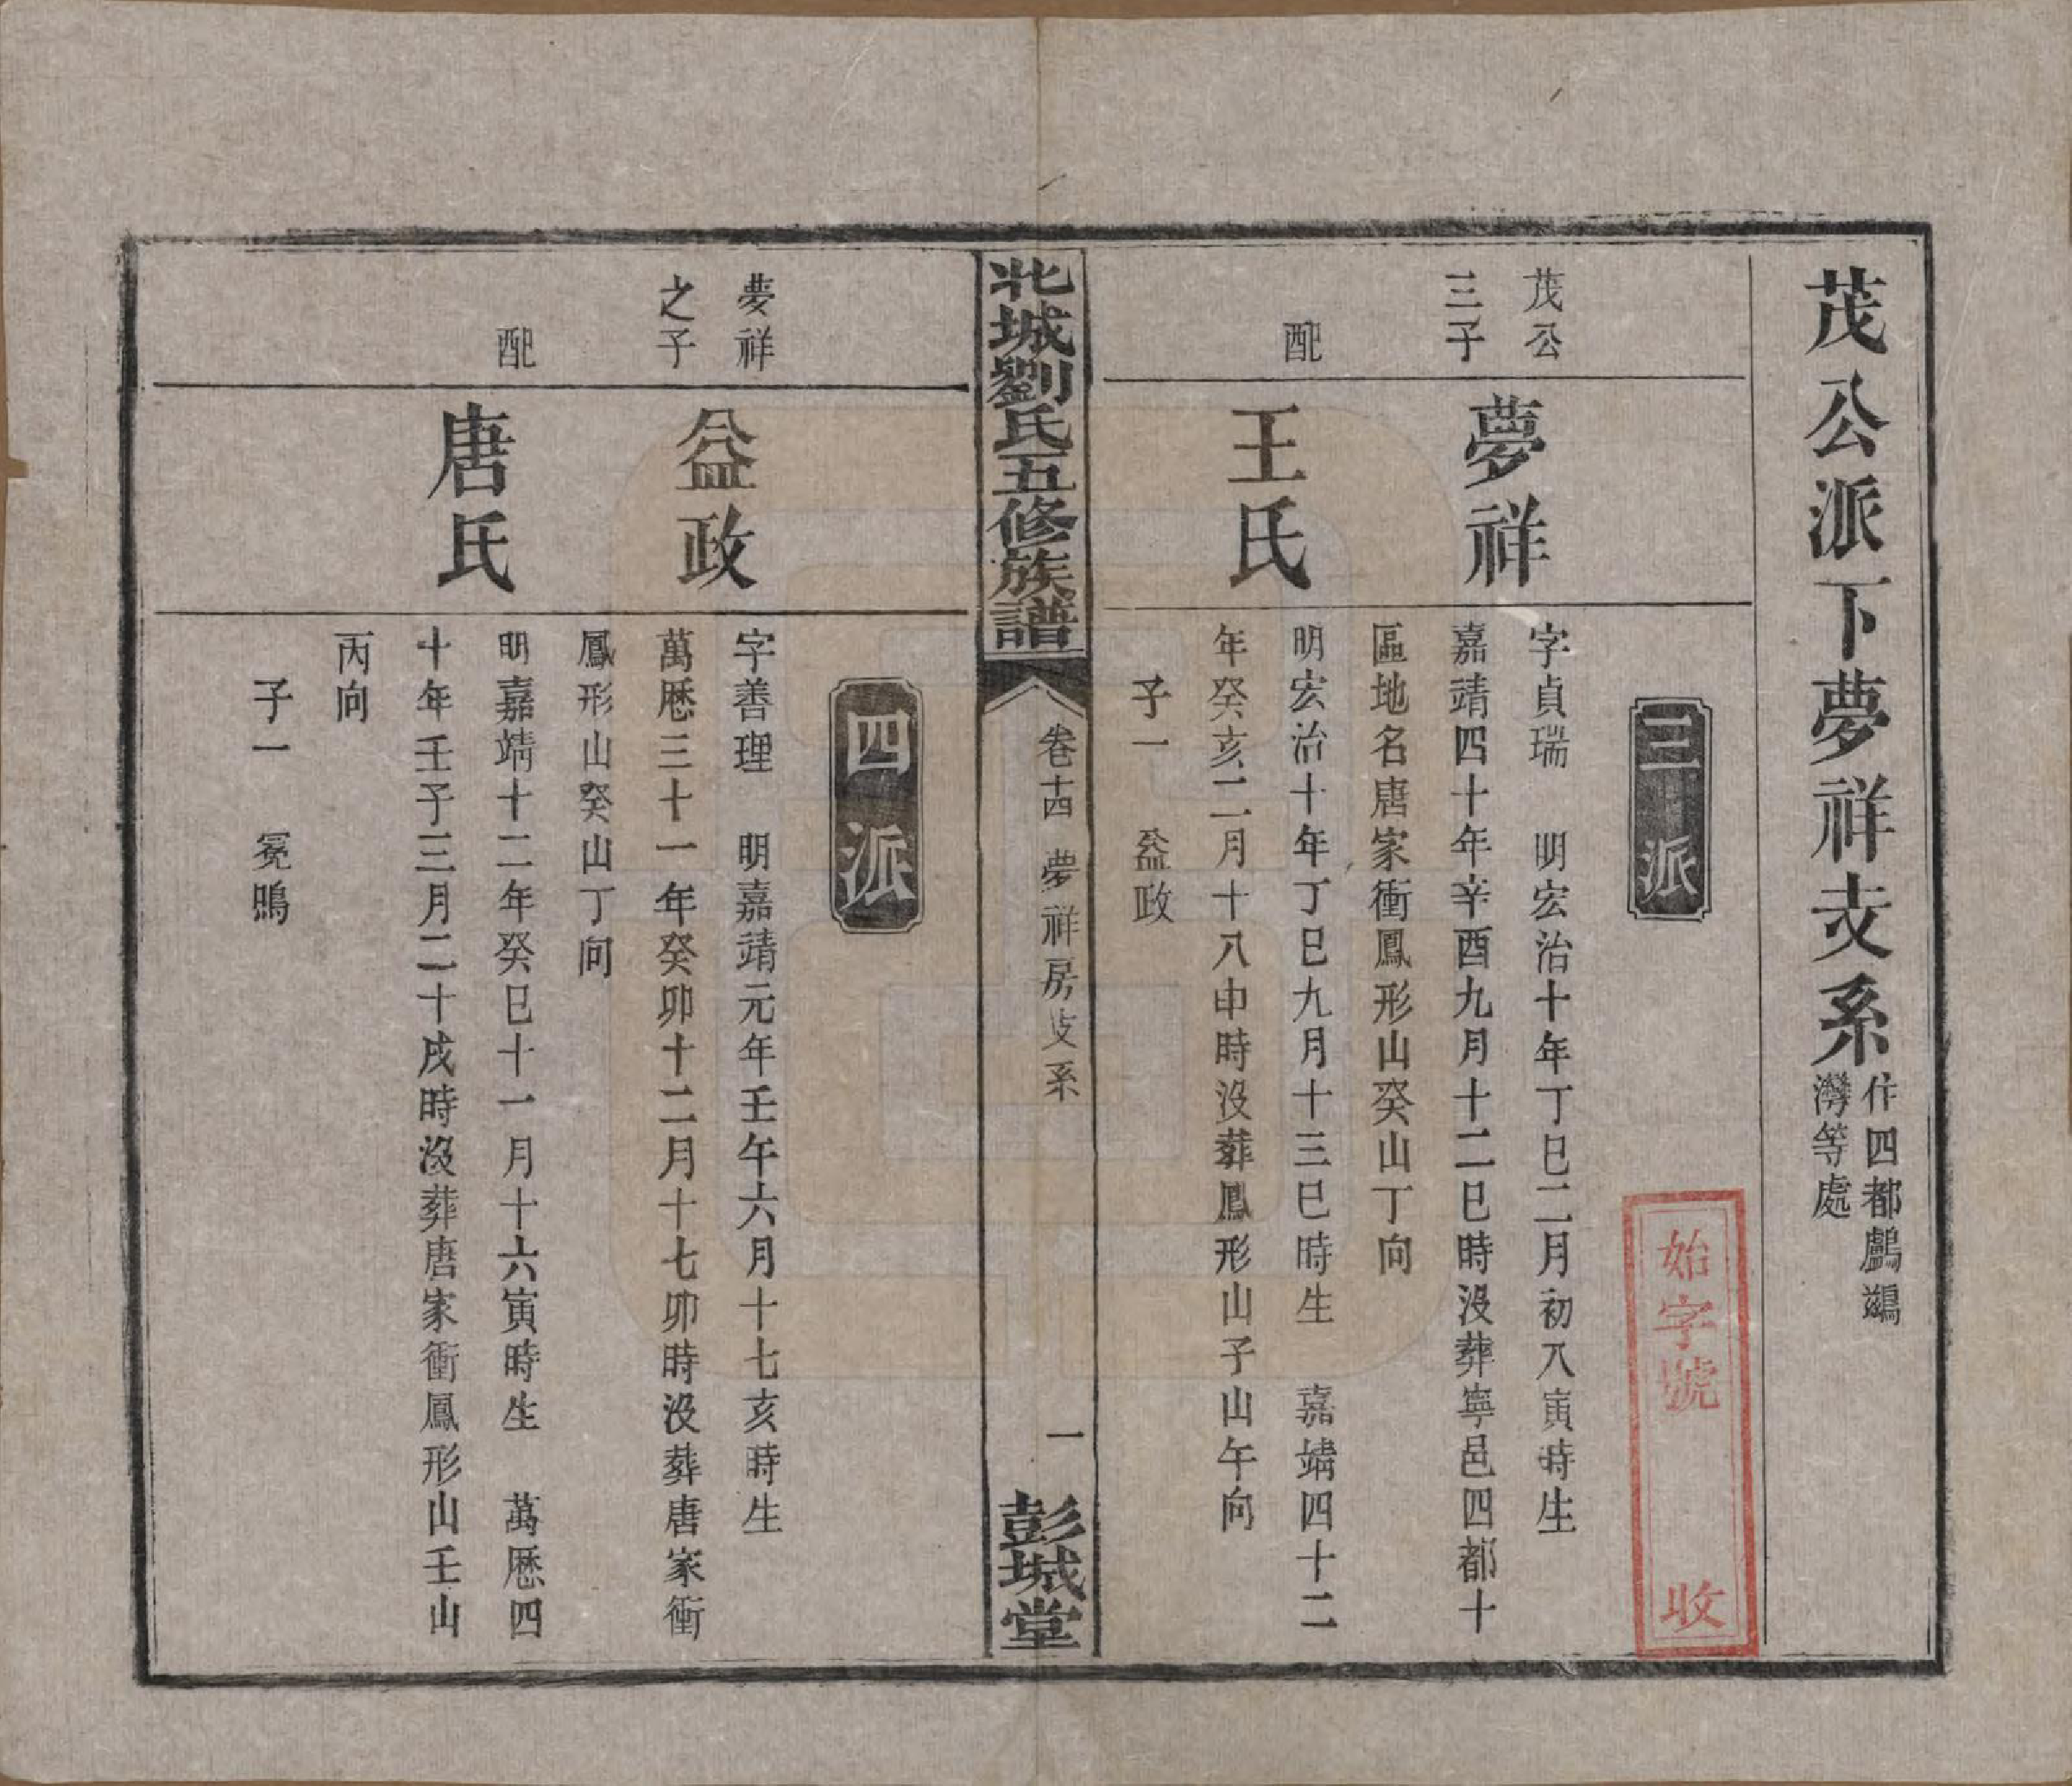 茂公派下夢祥支系
住四都鸕鷀
灣等處
始字號 收
三派
茂公
三子
夢祥
字貞瑞 明宏治十年丁巳二月初八寅時生
嘉靖四十年辛酉九月十二巳時没葬寧邑四都十
區地名唐家衝鳳形山癸山丁向
配
王氏
明宏治十年丁巳九月十三巳時生 嘉靖四十二
年癸亥二月十八申時没葬鳳形山子山午向
子一 益政
北城劉氏五修族譜 卷十四 夢祥房支系 一 彭城堂
四派
夢祥
之子
益政
字善理 明嘉靖元年壬午六月十七亥時生
萬厯三十一年癸卯十二月十七卯時没葬唐家衝
鳳形山癸山丁向
配
唐氏
明嘉靖十二年癸巳十一月十六寅時生 萬厯四
十年壬子三月二十戌時没葬唐家衝鳳形山壬山
丙向
子一 冕鳴